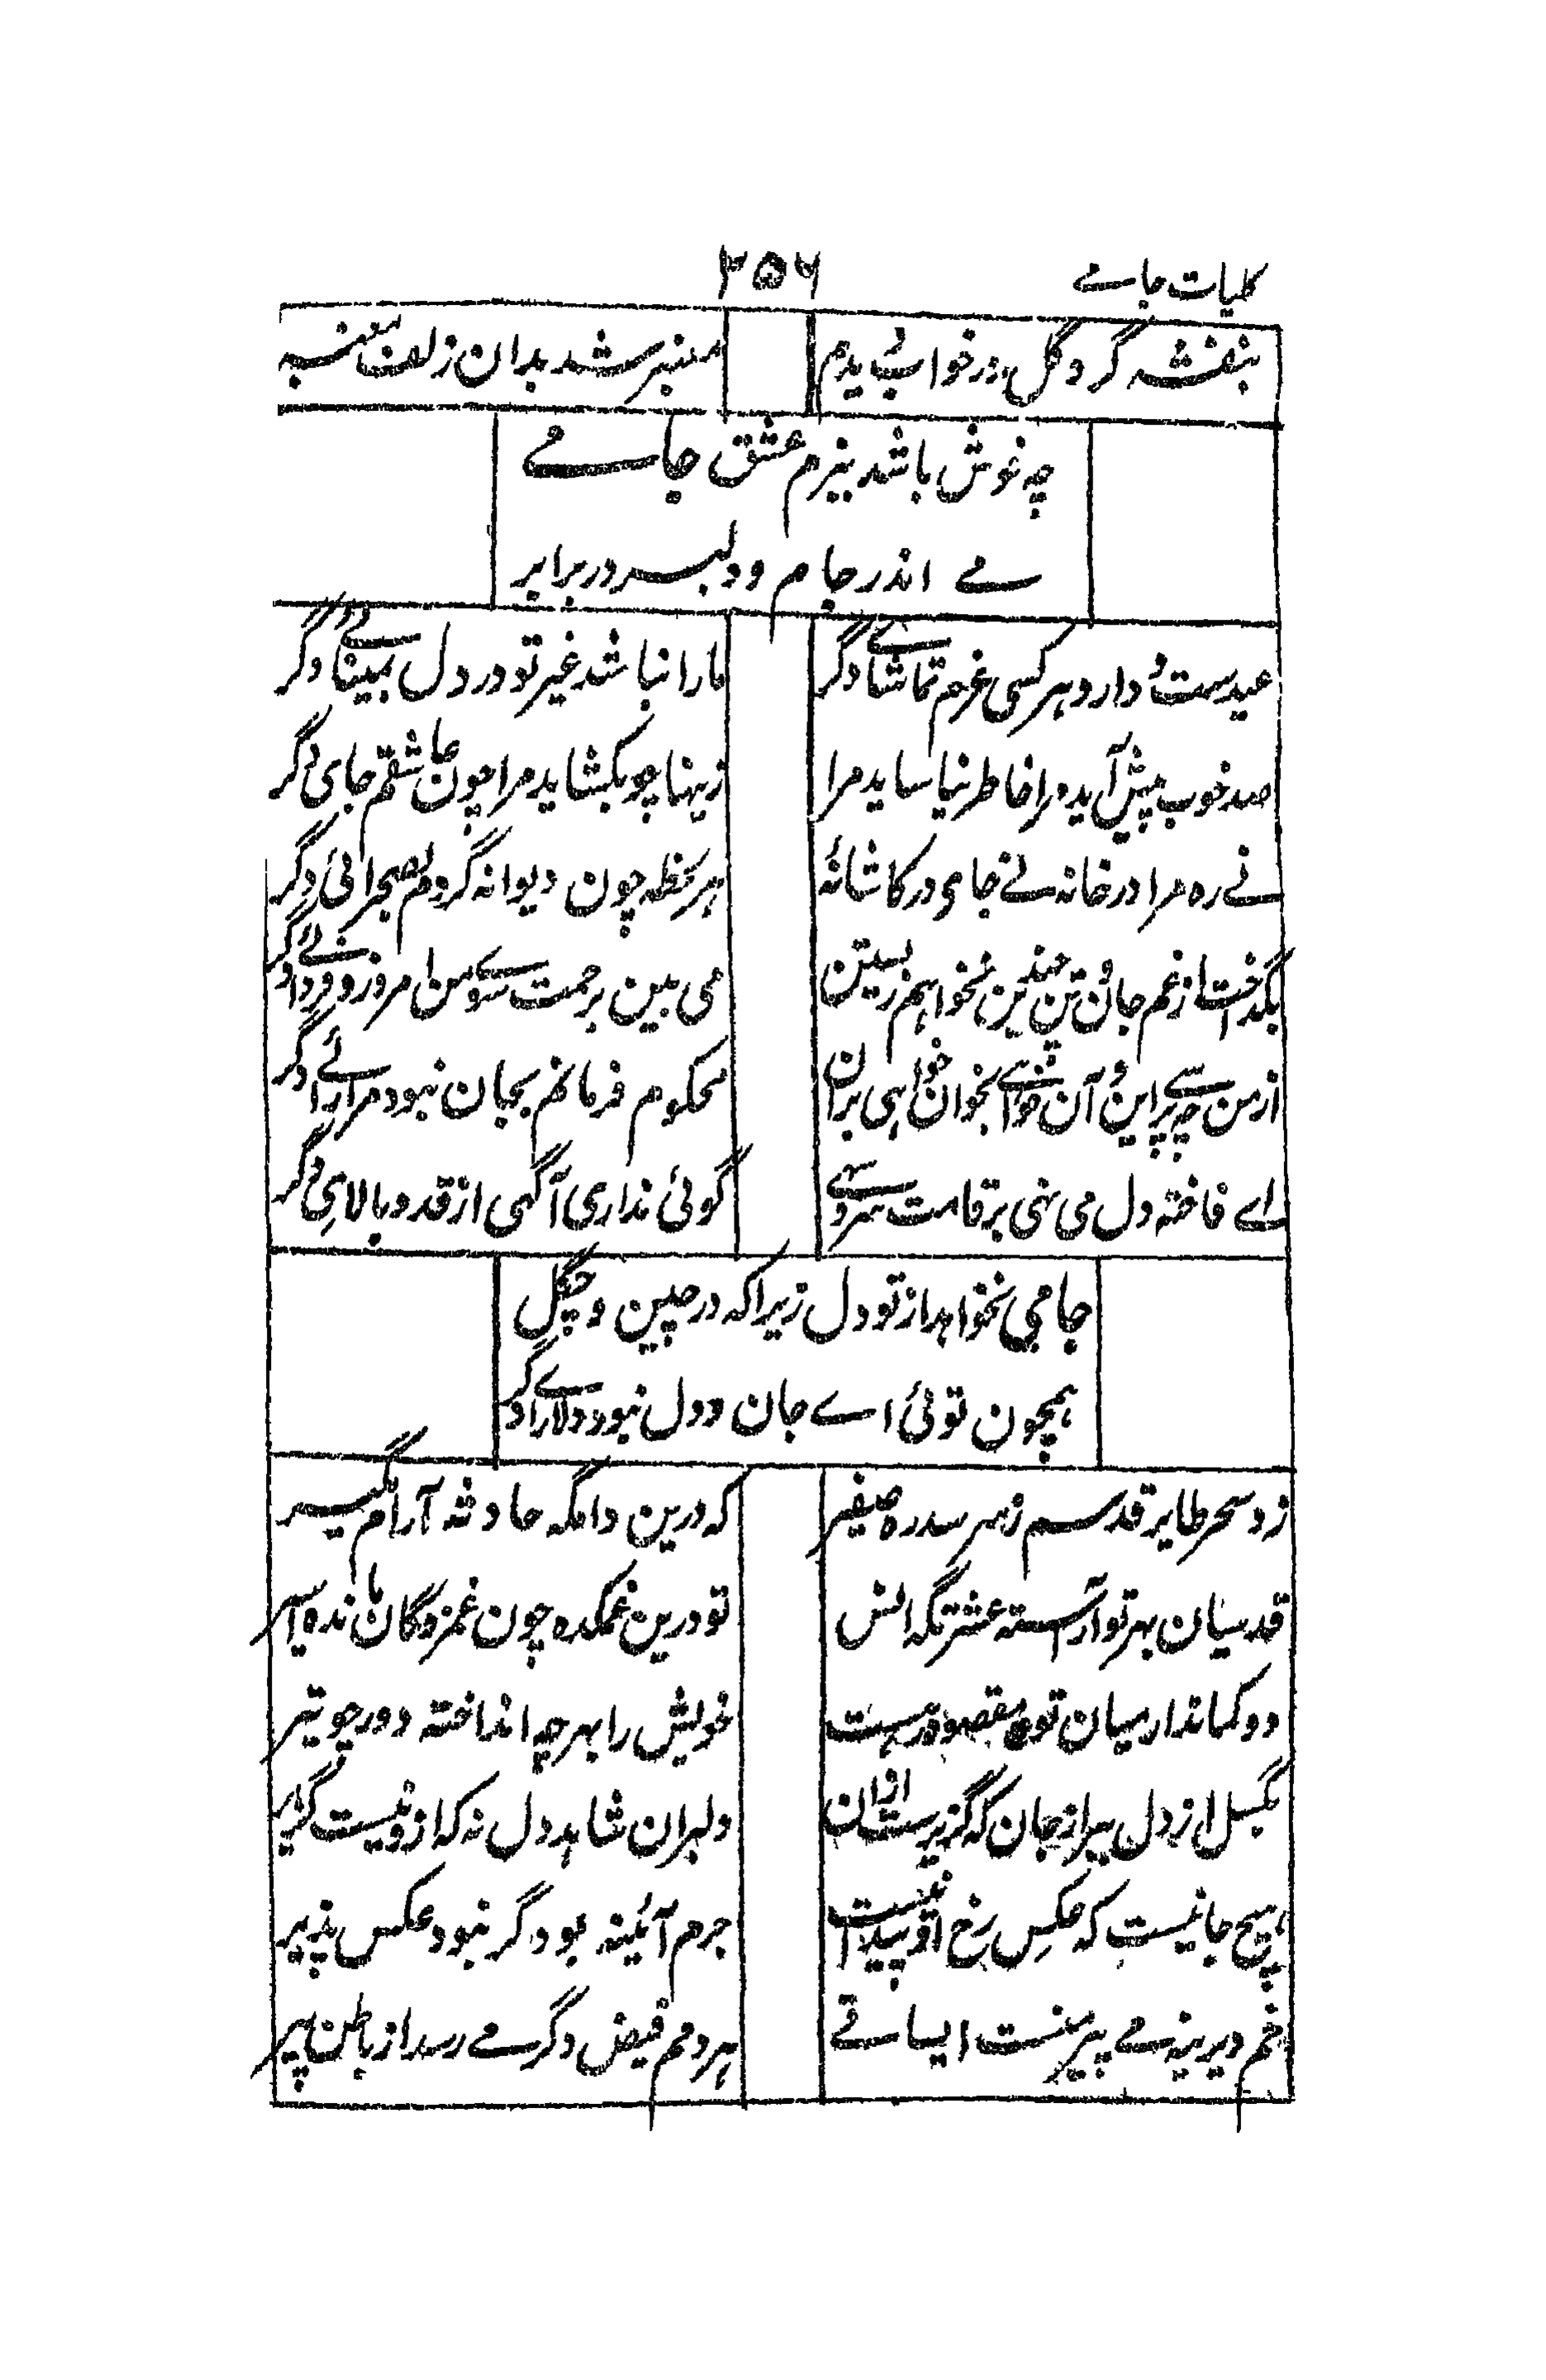 کلیات جامے
۳۵۶
بنفشہ گرد گل در خواب دیدم
معنبر شد بدان زلف معنبر
چہ خوش باشد ببزم عشق جامے
مے اندر جام و دلبر در برابر
عیدست و دارد ہر کسی عزم تماشاے دگر
ما را نباشد غیر تو در دل تمناے دگر
صد خوب پیش آید مرا خاطر نیاساید مرا
زینہا چو بکشاید مرا چون عاشقم جای دگر
نے رہ مرا در خانہ نے جای در کاشانۂ
ہر لحظہ چون دیوانہ گردم بصحرائی دگر
بگداخت از غم جان و تن چندین نخواہم زیستن
می بین برحمت سوے من امروز و فرداے دگر
از من چہ پرسے این و آن خواہی بخوان خواہی بران
محکوم فرمانم بجان نبود مرا راے دگر
اے فاختہ دل می نہی بر قامت سرو سہے
گوئی نداری آگہی از قد و بالای دگر
جامی نخواہد از تو دل زیرا کہ در چین و چگل
ہمچون توئی اے جان و دل نبود دلاراے دگر
زد سحر طایر قدسم ز سر سدرہ صفیر
کہ درین دامگہ حادثہ آرام مگیر
قدسیان بہر تو آراستہ عشرتگہ انس
تو درین غمکدہ چون غمزدگان ماندہ اسیر
دو کماندار میان تو و مقصود رہست
خویش را بہر چہ انداختہ دور چو تیر
بگسل از دل ببر از جان کہ گزیرست ازان
دلبران شاہد دل نہ کہ ازو نیست گزیر
ہیچ جا نیست کہ عکس رخ او پیدا نیست
جرم آئینہ بود گر نبود عکس پذیر
خم دیرینہ مے پیر منست ایساقے
ہردمم فیض دگر مے رسد از باطن پیر